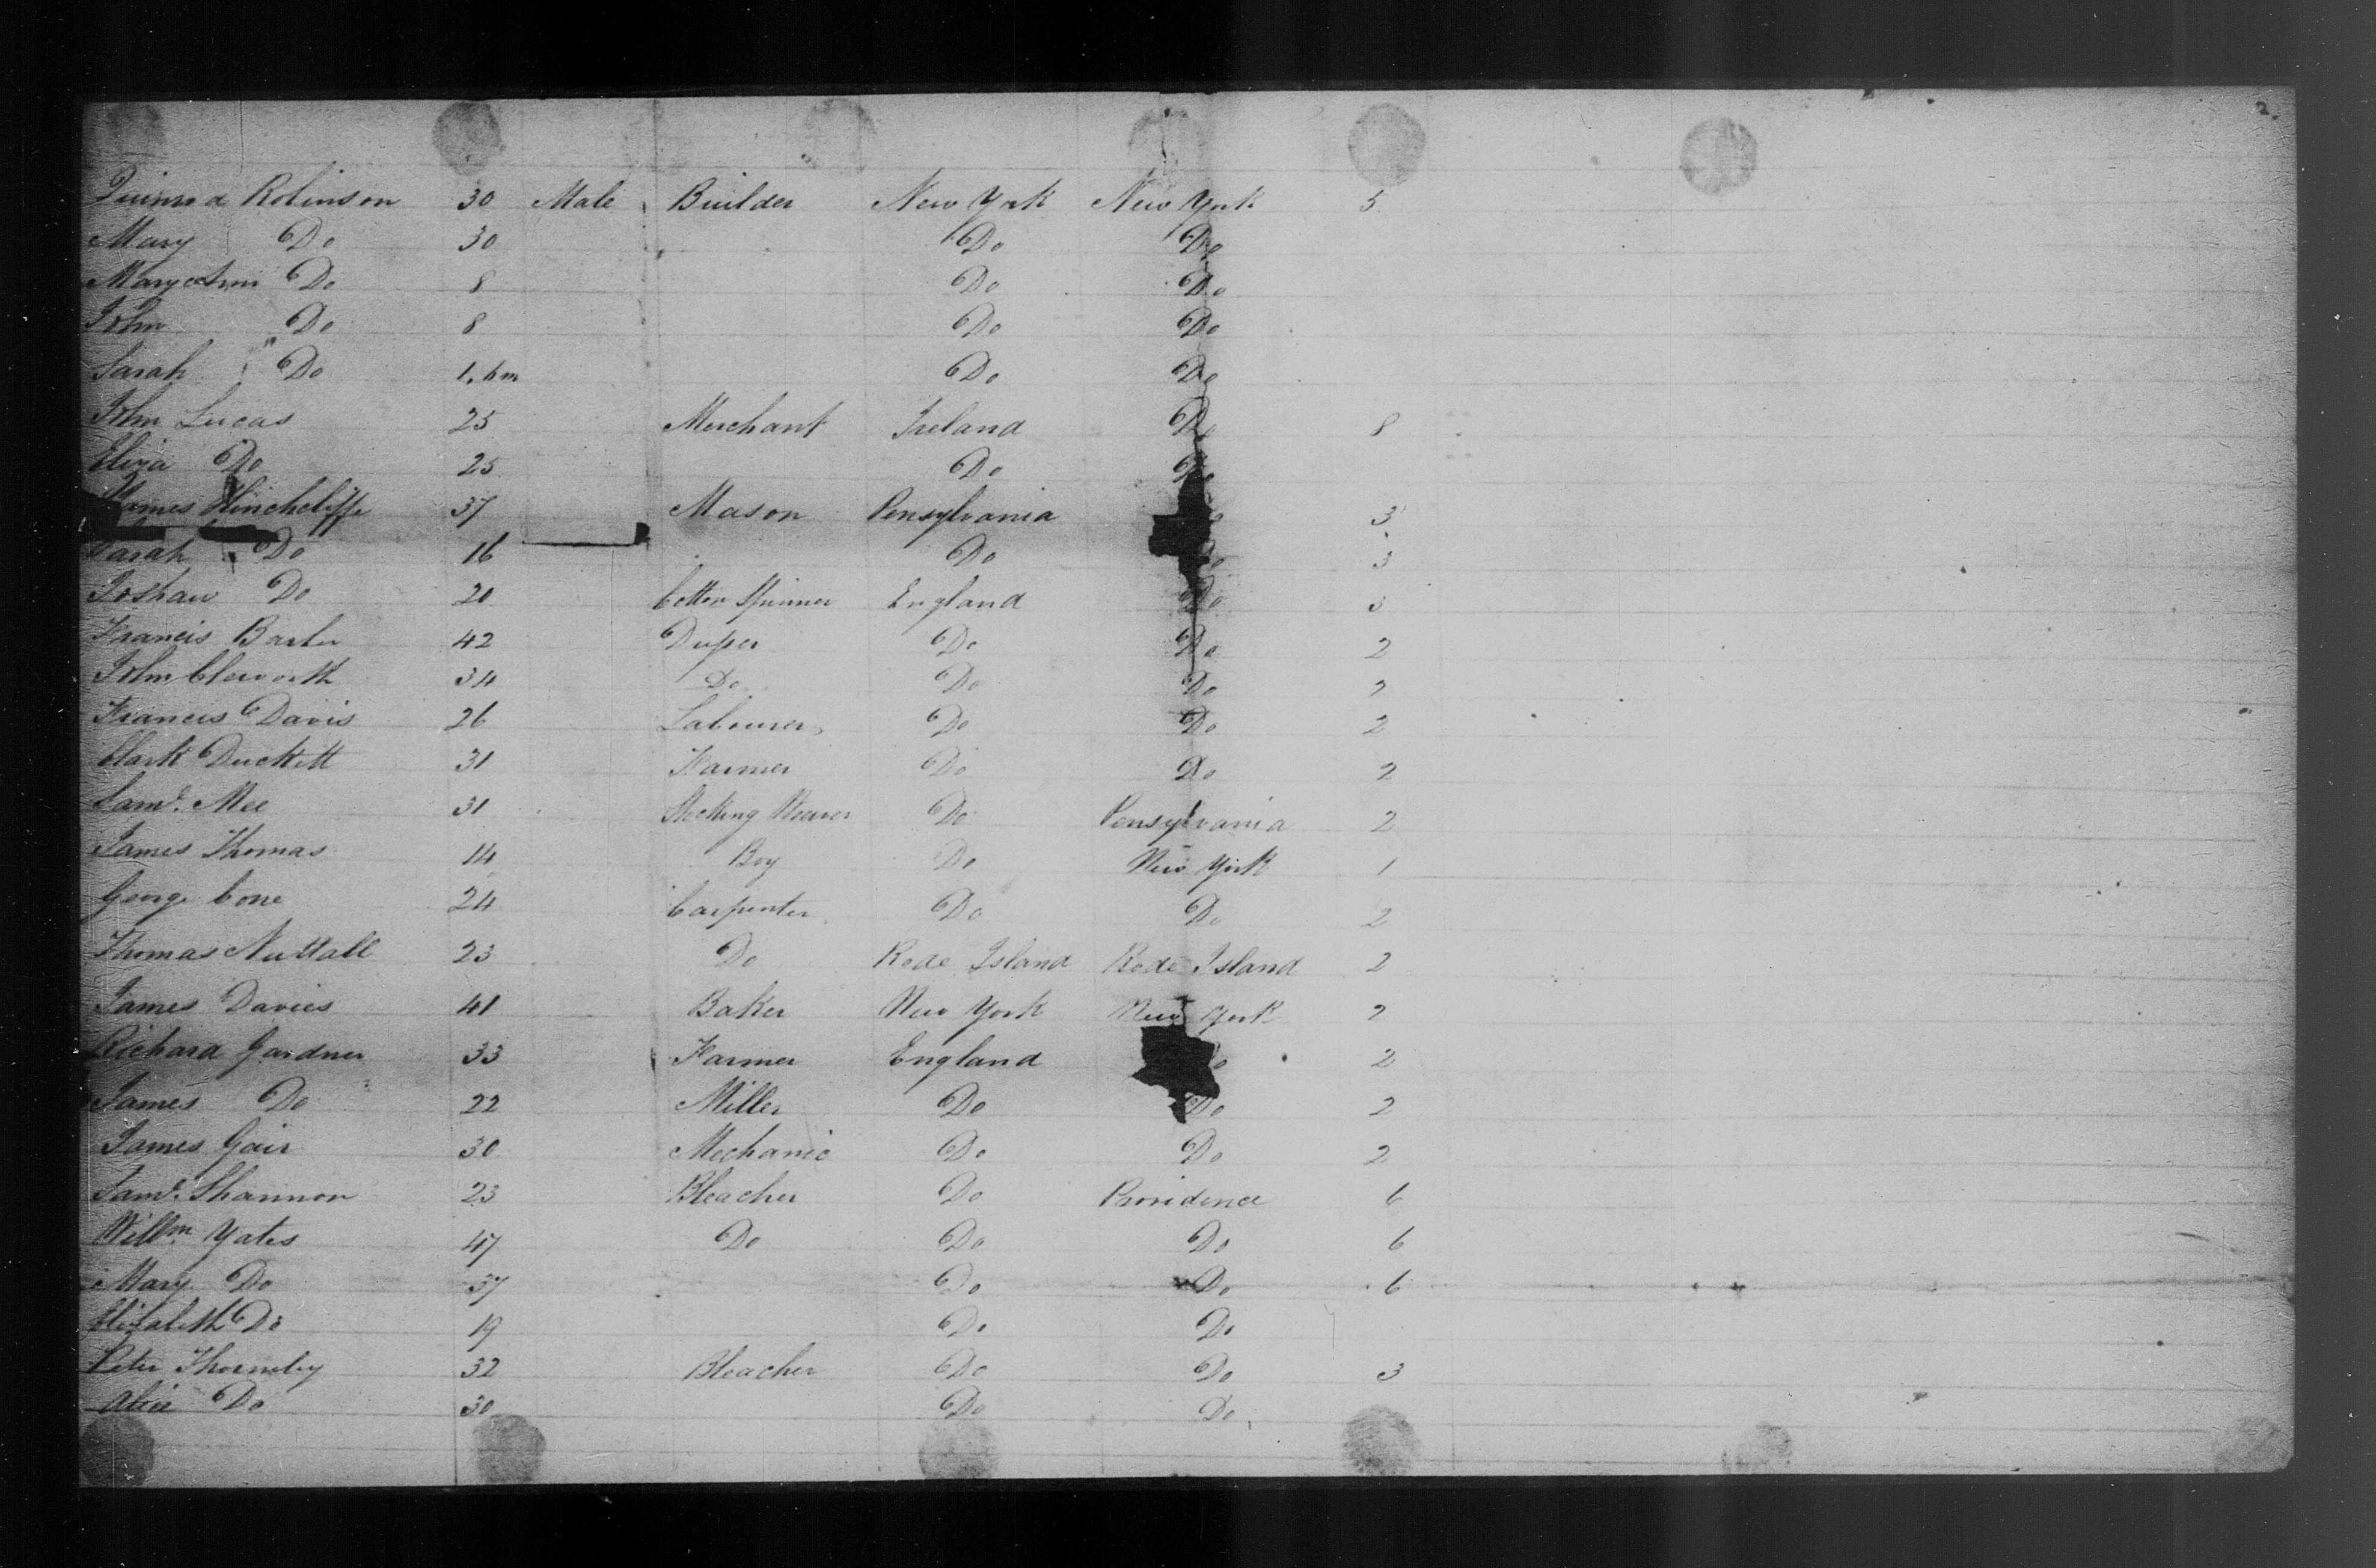 2.
Robinson 30 Male Builder New York New York 5
Mary Do 30 Do Do
Mary Ann Do 8 Do Do
John Do 8 Do Do
Sarah Do 1.6m Do Do
John Lucas 25 Merchant Ireland Do 8
Eliza Do 25 Do Do
James Hinchcliffe 37 Mason Pensylvania 3
Sarah Do 16 Do Do 3
Do 20 Cotton Spinner England Do 3
Francis 42 Do Do 2
John Clerworth 34 Do Do Do 2
Francis Davis 26 Labourer Do Do 2
Clark Duckett 31 Farmer Do Do 2
Saml. Mee 31 Stocking Weaver Do Pensylvania 2
James Thomas 14 Boy Do New York 1
George Cone 24 Carpenter Do Do 2
Thomas Nuttall 23 Do Rode Island Rode Island 2
James Davies 41 Baker New York New York 2
Richard Gardner 33 Farmer England 2
James Do 22 Miller Do Do 2
James Gair 30 Mechanic Do Do 2
Saml. Shannon 23 Bleacher Do Providence 6
Willm Yates 47 Do Do Do 6
Mary Do 37 Do Do 6
Elizabeth Do 19 Do Do
Peter Thorneley 32 Bleacher Do Do 3
Alice Do 30 Do Do